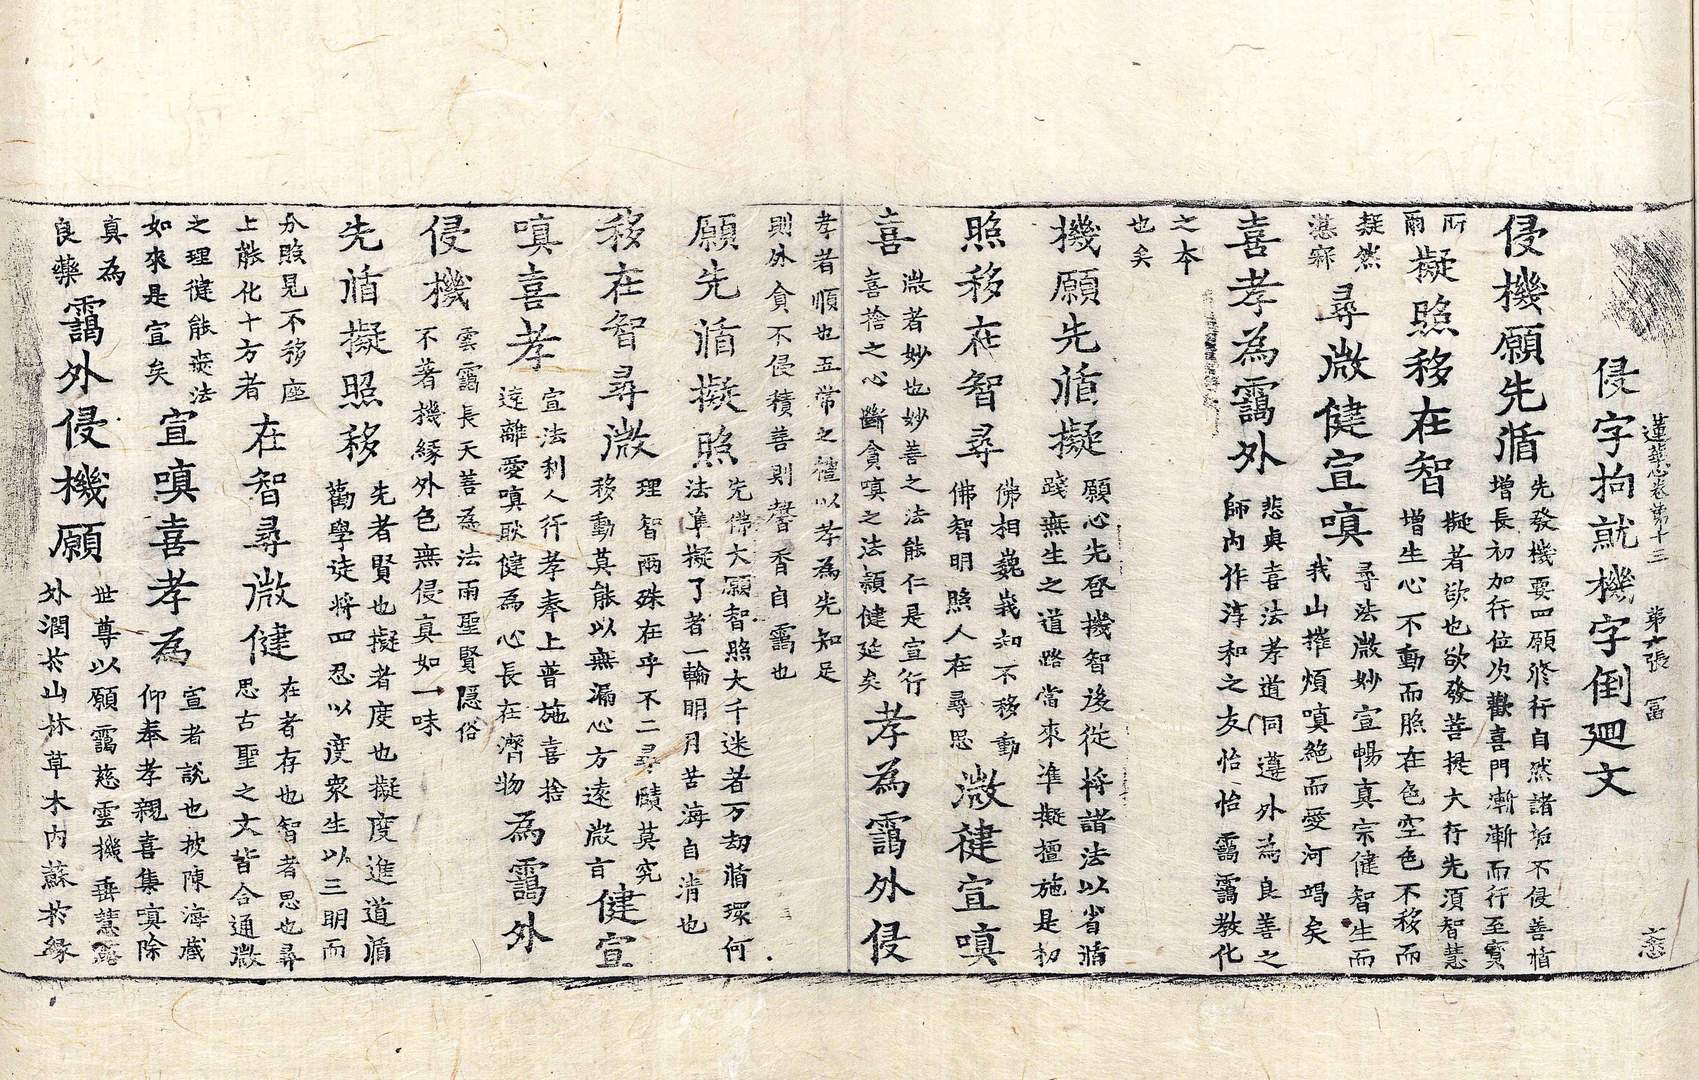 蓮華心卷第十三 第六張 冨
侵字拘就機字倒廻文
侵機願先循 先發機要四願修行自然諸垢不侵善循
增長初加行位次歡喜門漸漸而行至實
所
爾 擬照移在智 擬者欲也欲發菩提大行先須智慧
增生心不動而照在色空色不移而
凝然
湛寂 尋微健宣嗔 尋法微妙宣暢真宗健智生而
我山摧煩嗔絕而愛河竭矣
喜孝為靄外 悲真喜法孝道同遵外為良善之
師内作淳和之友怡怡靄靄教化
之本
也矣
機願先循擬 願心先啓機智後從将諸法以省循
踐無生之道路當來准擬檀施是初
照移在智尋 佛相巍峩知不移動
佛智明照人在尋思 微健宣嗔
喜 微者妙也妙善之法能仁是宣行
喜捨之心斷貪嗔之法額健延矣 孝為靄外侵
孝者順也五常之禮以孝為先知足
則外貪不侵積善則馨香自靄也
願先循擬照 先佛大願智照大千迷者万劫循環何
法準擬了者一輪明月苦海自清也
移在智尋微 理智兩殊在乎不二尋賾莫究
移動莫能以無漏心方遠微旨 健宣
嗔喜孝 宣法利人行孝奉上普施喜捨
遠離愛嗔耿健為心長在濟物 為靄外
侵機 雲靄長天善為法雨聖賢隱俗
不著機緣外色無侵真如一味
先循擬照移 先者賢也擬者度也擬度進道循
勸學徒将四忍以度衆生以三明而
分照見不移座
上能化十方者 在智尋微健 在者存也智者思也尋
思古聖之文皆合通微
之理健能喪法
如來是宣矣 宣嗔喜孝為 宣者說也披陳海藏
仰奉孝親喜集嗔除
真為
良藥 靄外侵機願 世尊以願靄慈雲機垂慧露
外潤於山林草木内蘇於緣